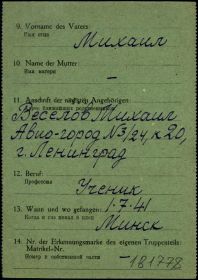 9. Vorname des Vaters:
Имя отца
Михаил
10. Name der Mutter:
Имя матери
—
11. Anschrift der nächsten Angehörigen:
Адрес ближайших родственников
Веселов Михаил
Авио-город №3/24, к 20
г. Ленинград
12. Beruf:
Профессия
Ученик
13. Wann und wo gefangen:
Когда и где попал в плен
1.7.41
Минск
14. Nr. der Erkennungsmarke des eigenen Truppenteils:
Matrikel-Nr.
Номер в собственной части
-181778